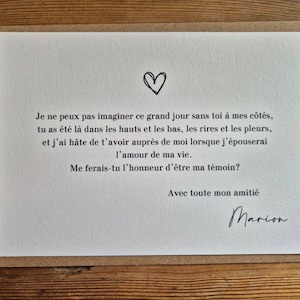 Je ne peux pas imaginer ce grand jour sans toi à mes côtés,
tu as été là dans les hauts et les bas, les rires et les pleurs,
et j'ai hâte de t'avoir auprès de moi lorsque j'épouserai
l'amour de ma vie.
Me ferais-tu l'honneur d'être ma témoin?
Avec toute mon amitié
Marion